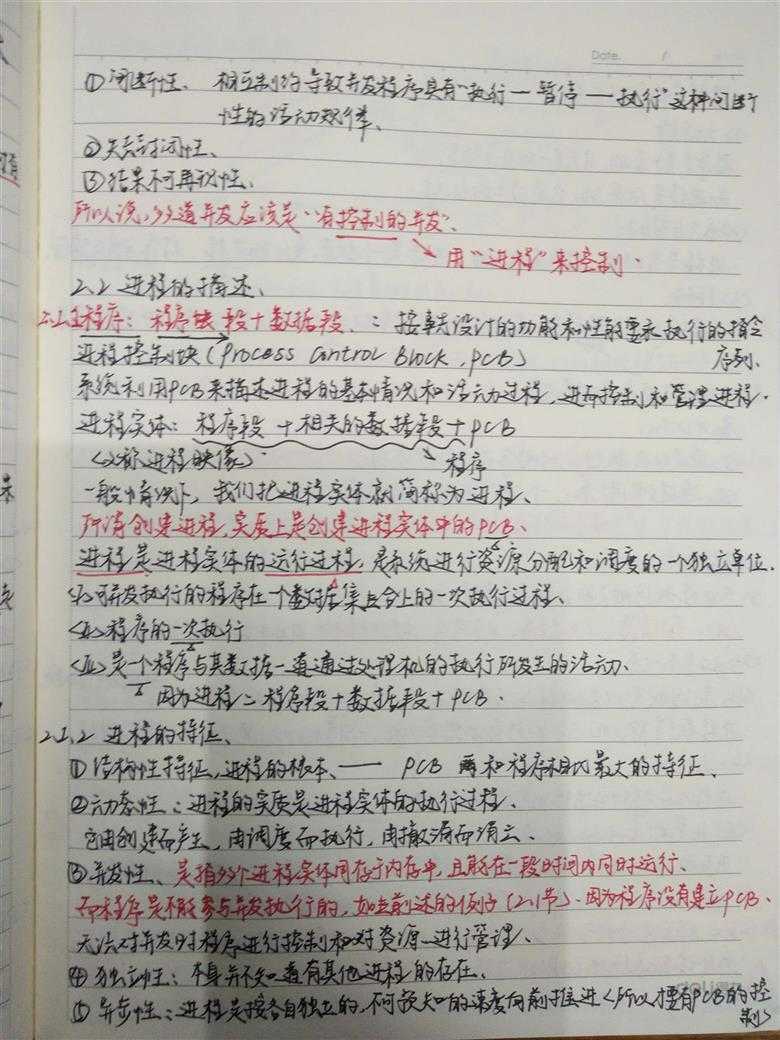 Date. /
①间断性、相互制约导致并发程序具有"执行一暂停一执行"这种间断
性的活动规律、
②失去封闭性、
③结果不可再现性、
所以说,多道并发应该是"有控制的并发".
用"进程"来控制.
2.2 进程的描述、
程序: 程序段+数据段、: 按事先设计的功能和性能要求执行的指令
序列.
进程控制块(Process Control Block, PCB)
系统利用PCB来描述进程的基本情况和活动过程,进而控制和管理进程.
进程实体: 程序段+相关的数据段+PCB
<又称进程映像> 程序
一般情况下,我们把进程实体就简称为进程、
所谓创建进程,实质上是创建进程实体中的PCB、
进程是进程实体的运行过程,是系统进行资源分配和调度的一个独立单位.
<I>可并发执行的程序在一个数据集合上的一次执行过程、
<II>程序的一次执行
<III>是一个程序与其数据一道通过处理机的执行所发生的活动、
因为进程=程序段+数据段+PCB.
2.2.2 进程的特征、
①结构性特征,进程的根本、—— PCB 和程序相比最大的特征、
②动态性:进程的实质是进程实体的执行过程、
它由创建而产生,由调度而执行,由撤消而消亡、
③并发性、是指多个进程实体同存于内存中,且能在一段时间内同时运行、
而程序是不能参与并发执行的,如前述的例子(2.1节)、因为程序没有建立PCB、
无法对并发时程序进行控制和对资源进行管理、
④独立性:本身并不知道有其他进程的存在、
⑤异步性:进程是按各自独立的,不可预知的速度向前推进<所以才要有PCB的控
制>